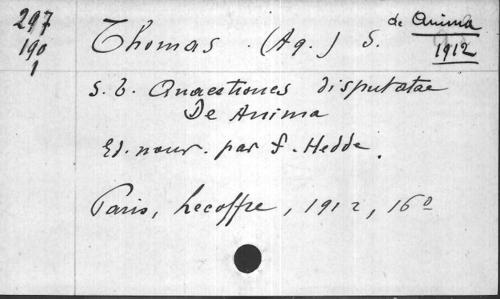 297
190
1
de Anima
1912
Thomas (Aq.) S.
s. t. Quaestiones disputatae
De Anima
Ed. nouv. par F. Hedde.
Paris, Lecoffre, 1912, 16º